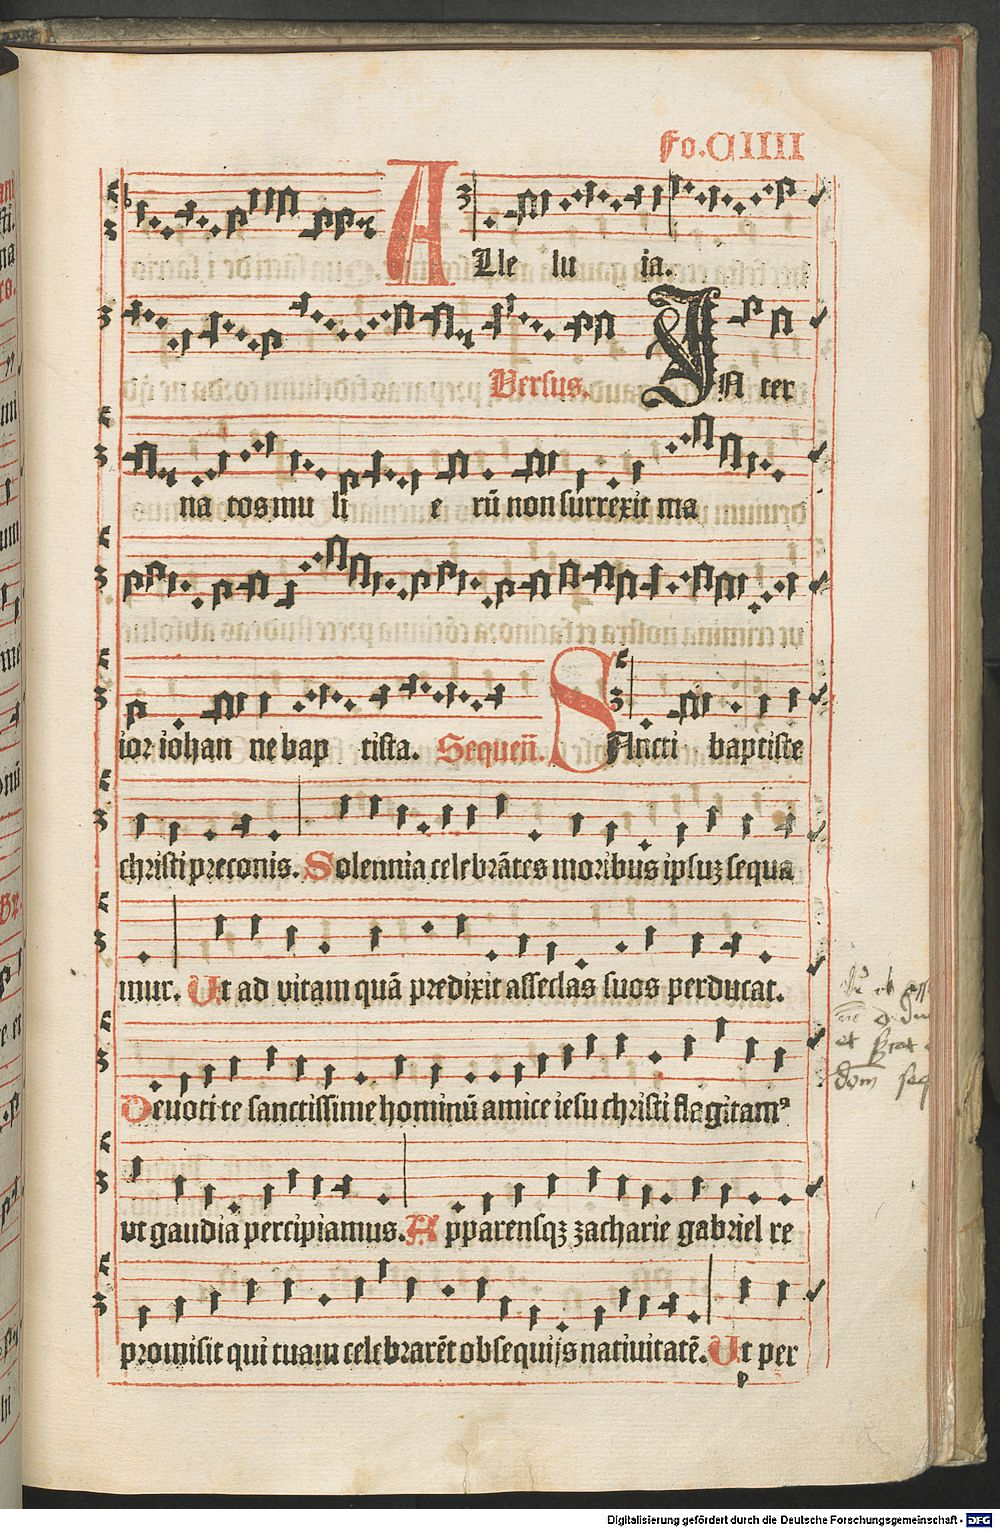 Fo.CIIII
ALle lu ia.
Versus. IN ter
na tos mu li e rū non surrexit ma
ior iohan ne bap tista. Sequeñ. SAncti baptiste
christi preconis. Solennia celebrātes moribus ipsuz sequa
mur. Ut ad vitam quā predixit asseclas suos perducat.
Deuoti te sanctissime hominū amice iesu christi flagitamꝰ
vt gaudia percipiamus. Apparensqꝫ zacharie gabriel re
promisit qui tuam celebrarēt obsequijs natiuitatē. Ut per
p
Digitalisierung gefördert durch die Deutsche Forschungsgemeinschaft - DFG